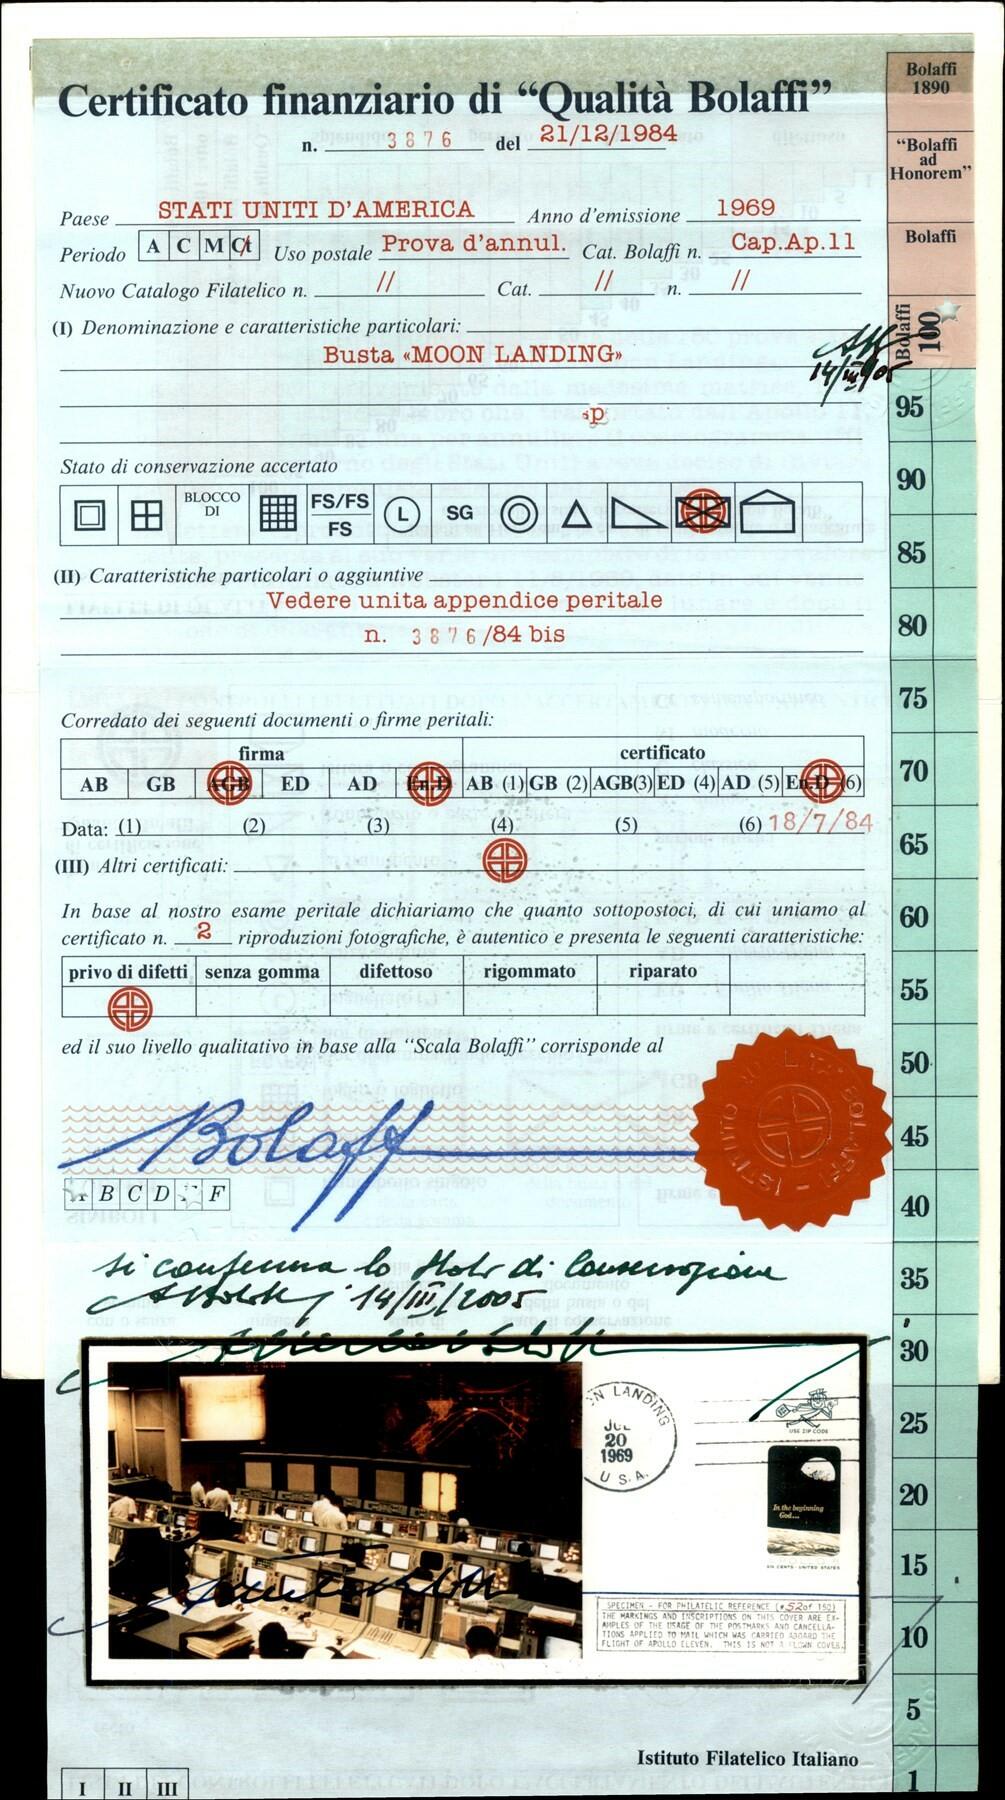 Certificato finanziario di “Qualità Bolaffi”
n. 3876 del 21/12/1984
Paese STATI UNITI D'AMERICA Anno d'emissione 1969
Periodo A C M Ct Uso postale Prova d'annul. Cat. Bolaffi n. Cap.Ap.11
Nuovo Catalogo Filatelico n. // Cat. // n. //
(I) Denominazione e caratteristiche particolari:
Busta «MOON LANDING»
14/III/05
Stato di conservazione accertato
BLOCCO DI FS/FS FS L SG
(II) Caratteristiche particolari o aggiuntive
Vedere unita appendice peritale
n. 3876/84 bis
Corredato dei seguenti documenti o firme peritali:
firma certificato
AB GB AGB ED AD En.D AB (1) GB (2) AGB(3) ED (4) AD (5) En.D (6)
Data: (1) (2) (3) (4) (5) (6) 18/7/84
(III) Altri certificati:
In base al nostro esame peritale dichiariamo che quanto sottopostoci, di cui uniamo al
certificato n. 2 riproduzioni fotografiche, è autentico e presenta le seguenti caratteristiche:
privo di difetti senza gomma difettoso rigommato riparato
ed il suo livello qualitativo in base alla “Scala Bolaffi” corrisponde al
Bolaffi
B C D F
si conferma lo stato di conservazione
14/III/2005
MOON LANDING
JUL
20
1969
U.S.A.
USE ZIP CODE
In the beginning
God...
SIX CENTS · UNITED STATES
SPECIMEN - FOR PHILATELIC REFERENCE (#52 of 150)
THE MARKINGS AND INSCRIPTIONS ON THIS COVER ARE EX-
AMPLES OF THE USAGE OF THE POSTMARKS AND CANCELLA-
TIONS APPLIED TO MAIL WHICH WAS CARRIED ABOARD THE
FLIGHT OF APOLLO ELEVEN. THIS IS NOT A FLOWN COVER.
Istituto Filatelico Italiano
I II III
Bolaffi
1890
“Bolaffi
ad
Honorem”
Bolaffi
Bolaffi
100
95
90
85
80
75
70
65
60
55
50
45
40
35
30
25
20
15
10
5
1